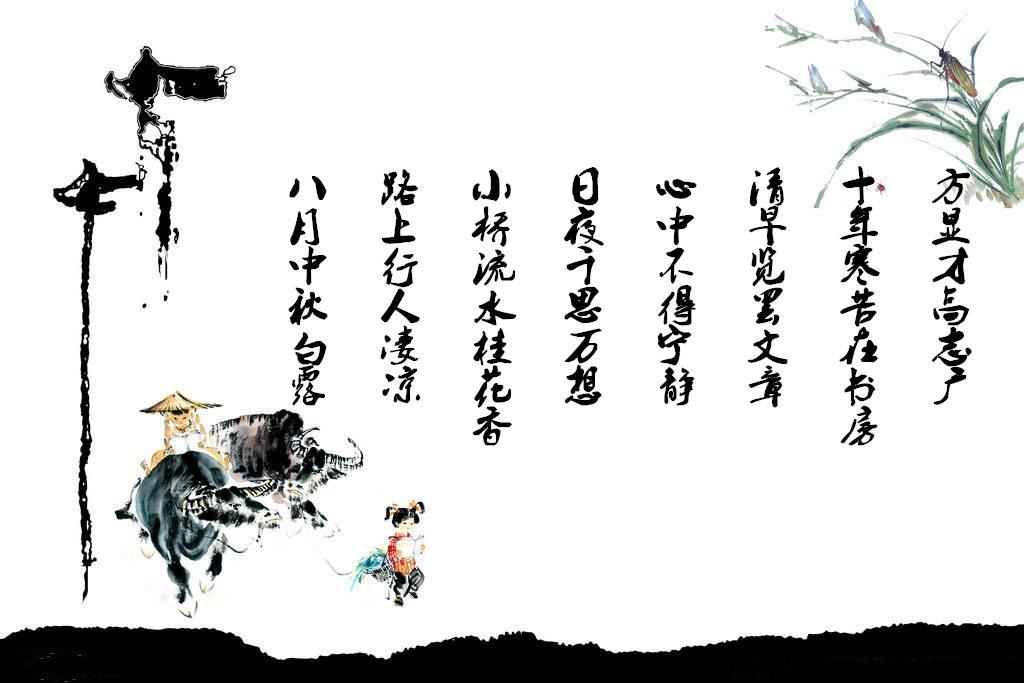 八月中秋白露
路上行人凄凉
小桥流水桂花香
日夜千思万想
心中不得宁静
清早览罢文章
十年寒苦在书房
方显才高志广